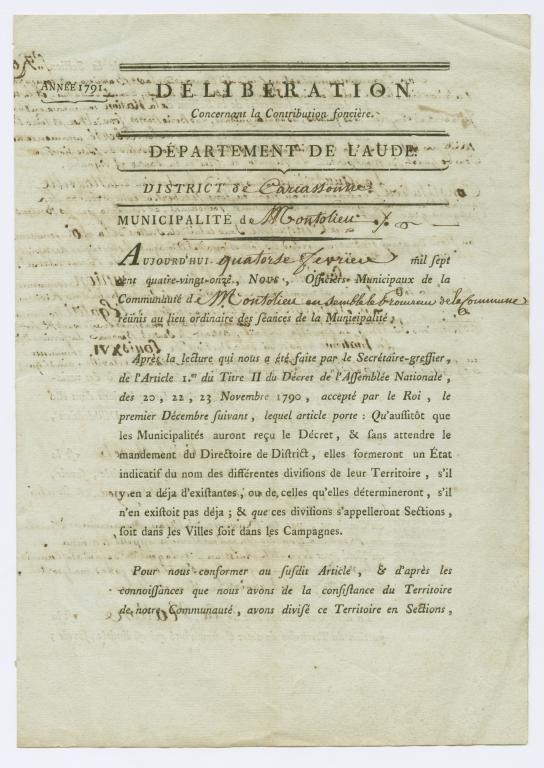 ANNÉE 1791.
DÉLIBÉRATION
Concernant la Contribution foncière.
DÉPARTEMENT DE L'AUDE.
DISTRICT de Carcassonne
MUNICIPALITÉ de Montolieu
AUJOURD'HUI quatorse fevrier mil sept
cent quatre-vingt-onze, NOUS, Officiers Municipaux de la
Communauté de Montolieu ensemble le procureur de la Commune
réunis au lieu ordinaire des séances de la Municipalité;
Après la lecture qui nous a été faite par le Secrétaire-greffier,
de l'Article 1.er du Titre II du Décret de l'Assemblée Nationale,
des 20, 22, 23 Novembre 1790, accepté par le Roi, le
premier Décembre suivant, lequel article porte: Qu'aussitôt que
les Municipalités auront reçu le Décret, & sans attendre le
mandement du Directoire de District, elles formeront un État
indicatif du nom des différentes divisions de leur Territoire, s'il
y en a déja d'existantes, ou de celles qu'elles détermineront, s'il
n'en existoit pas déja; & que ces divisions s'appelleront Sections,
soit dans les Villes soit dans les Campagnes.
Pour nous conformer au susdit Article, & d'après les
connoissances que nous avons de la consistance du Territoire
de notre Communauté, avons divisé ce Territoire en Sections,